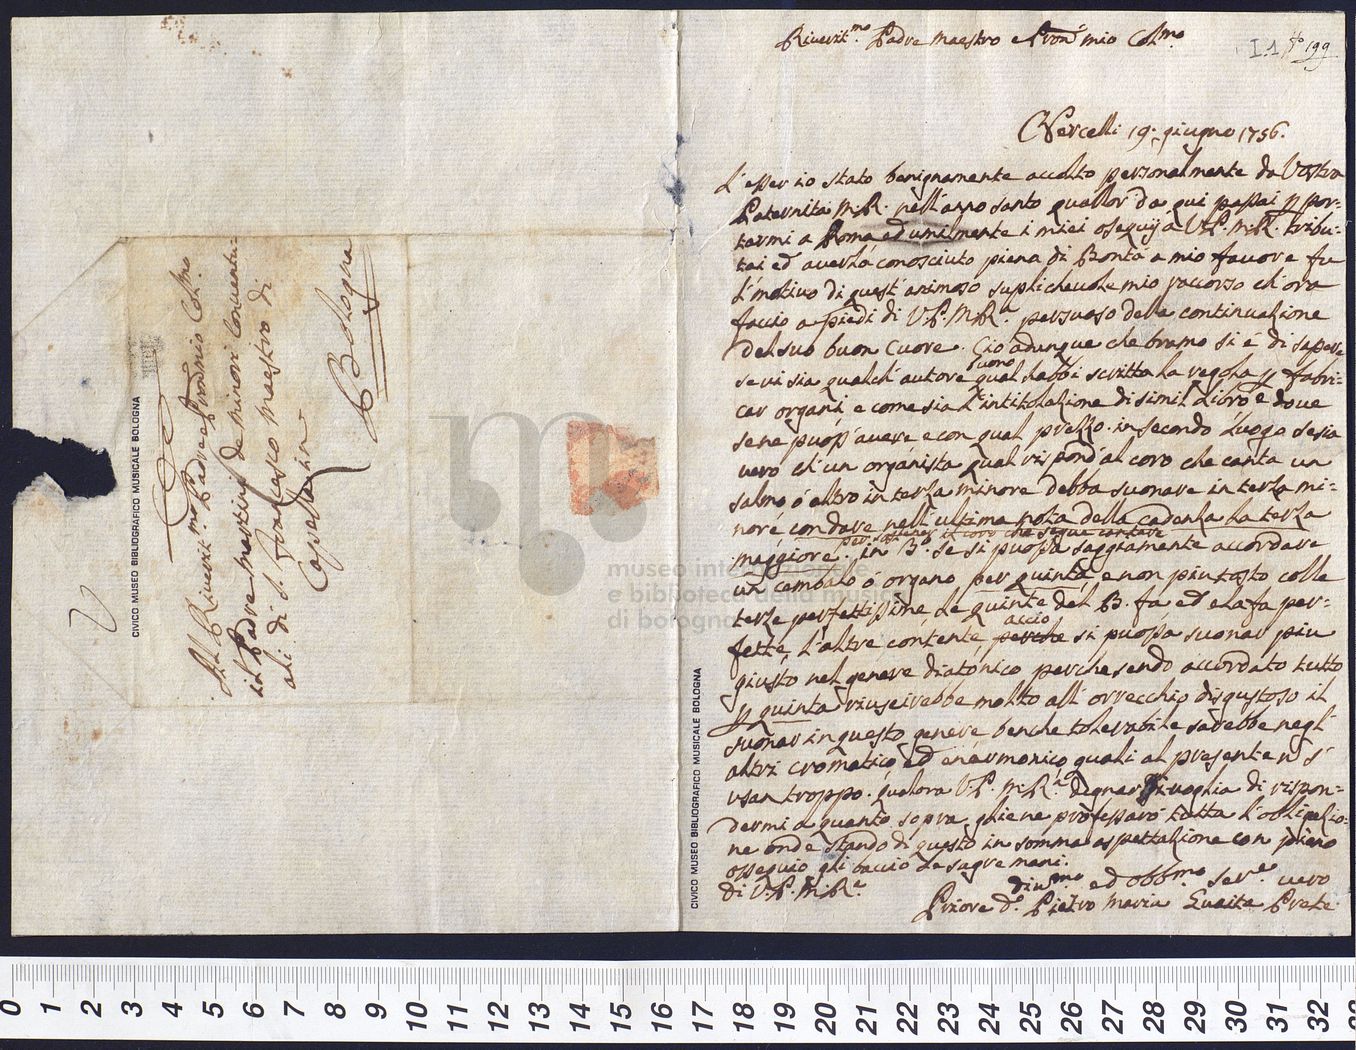 Riverit.mo Padre Maestro e Pron mio Col.mo
I.1
199
Vercelli 19. giugno 1756.
L'esser io stato benignamente accolto personalmente da Vostra
Paternita M.R. nell'anno santo quallor da qui passai p por-
tarmi a Roma ed umilmente i miei ossequij à V.P.M.R. tribu-
tai ed averla conosciuto piena di Bontà a mio favore fu
l'motivo di quest'animoso suplichevole mio raccorso ch'ora
faccio a piedi di V.P.M.R.a persuaso della continuazione
del suo buon Cuore. Ciò adunque che bramo si è di sapere
se vi sia qualch'autore qual habbi scritto la regola p fabri-
car organi e come sia l'intitolazione di simil Libro e dove
se ne puoss'avere e con qual prezzo. in secondo Luogo se sia
vero ch'un organista qual rispond'al coro che canta un
salmo ó altro in terza minore debba suonare in terza mi-
nore con dare nell'ultima nota della cadenza la terza
per sostener il coro che segue cantare
maggiore. in 3o. se si puossa saggiamente accordare
un Cembalo ó organo per quinta, e non piutosto colle
terze perfettissime le quinte del B. fa ed elafa per-
fette, l'altre contente acciò perche si puossa suonar piu
giusto nel genere diatonico perche sendo accordato tutto
p quinta riuscirebbe molto all'orrecchio disgustoso il
suonar in questo genere benche tolerabile sarebbe negl'
altri cromatico ed enarmonico quali al presente n s'
usan troppo. qualora V.P.M.R.a degnar si voglia di rispon-
dermi a quanto sopra gliene professarò tutta l'obligazio-
ne onde stando di questo in somma aspettazione con pieno
ossequio gli baccio le sagre mani.
di V.P.M.R.a
divmo ed obbmo serve vero
Priore D. Pietro Maria Guaita Prete
Al Riverit.mo Padre e Pronînio Col.mo
il Padre Martini de Minori Conventu-
ali di S. Francesco Maestro di
Capella in
Bologna
CIVICO MUSEO BIBLIOGRAFICO MUSICALE BOLOGNA
CIVICO MUSEO BIBLIOGRAFICO MUSICALE BOLOGNA
museo internazionale
e biblioteca della musica
di bologna
0 1 2 3 4 5 6 7 8 9 10 11 12 13 14 15 16 17 18 19 20 21 22 23 24 25 26 27 28 29 30 31 32